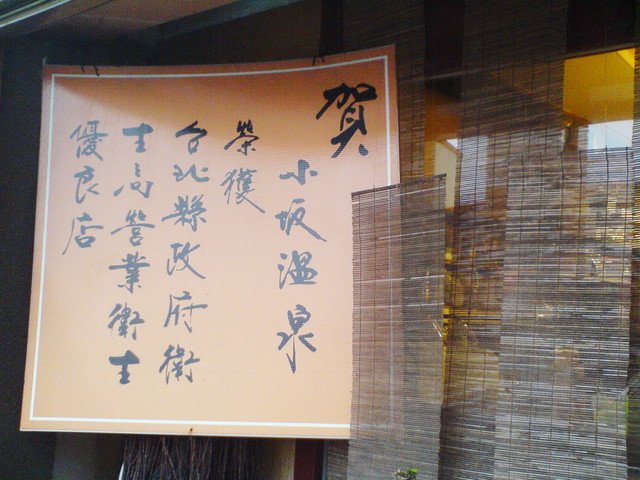 賀
小坂溫泉
榮獲
台北縣政府衛
生局營業衛生
優良店